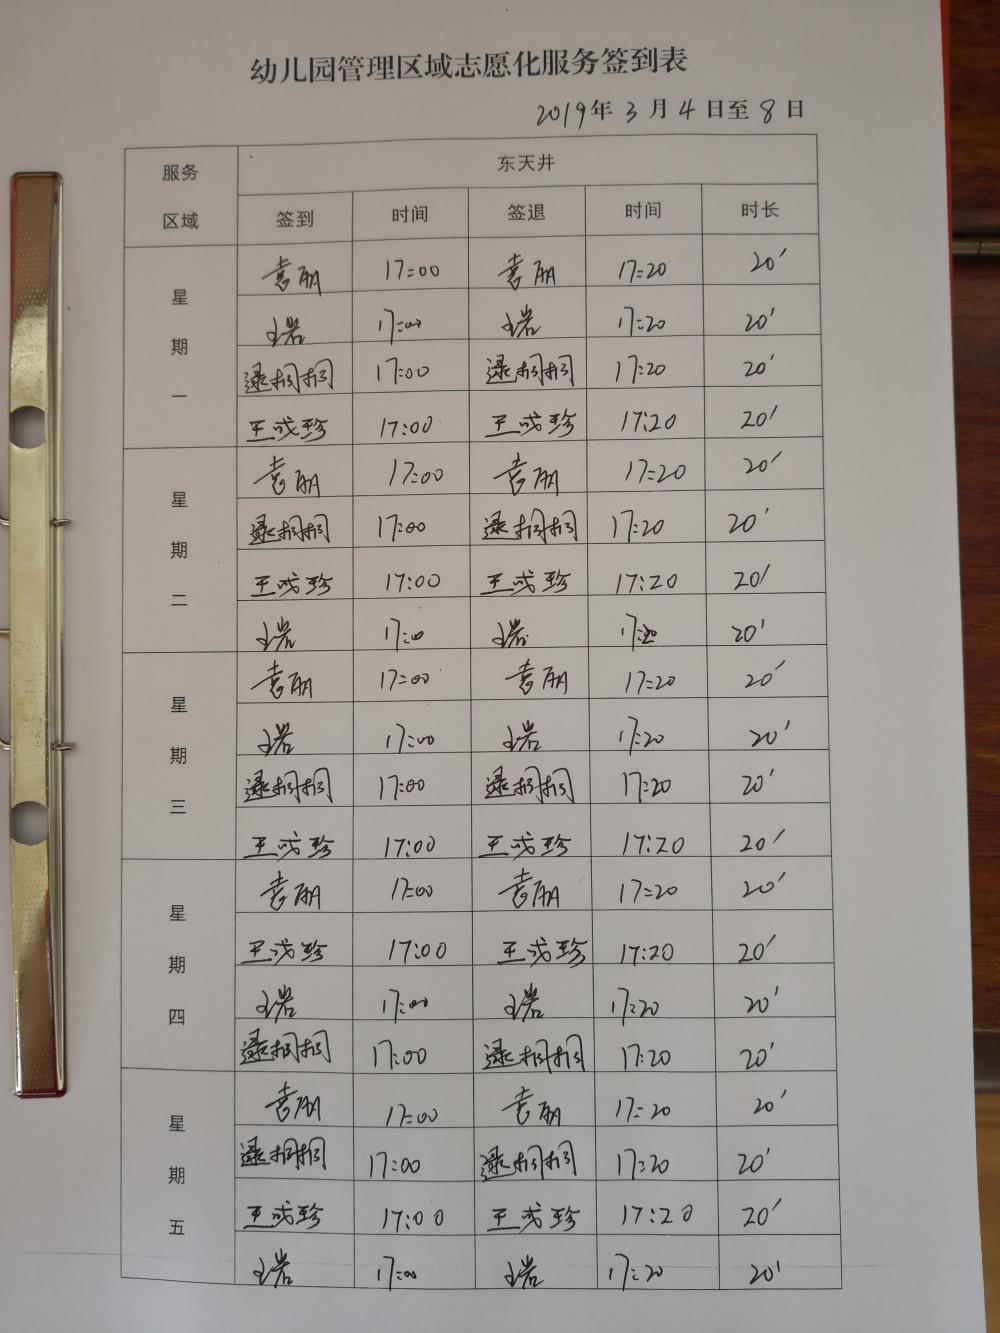 幼儿园管理区域志愿化服务签到表
2019年3月4日至8日
服务区域 东天井
签到 时间 签退 时间 时长
星期一
袁丽 17:00 袁丽 17:20 20′
王岩 17:00 王岩 17:20 20′
逯桐桐 17:00 逯桐桐 17:20 20′
王成珍 17:00 王成珍 17:20 20′
星期二
袁丽 17:00 袁丽 17:20 20′
逯桐桐 17:00 逯桐桐 17:20 20′
王成珍 17:00 王成珍 17:20 20′
王岩 17:00 王岩 17:20 20′
星期三
袁丽 17:00 袁丽 17:20 20′
王岩 17:00 王岩 17:20 20′
逯桐桐 17:00 逯桐桐 17:20 20′
王成珍 17:00 王成珍 17:20 20′
星期四
袁丽 17:00 袁丽 17:20 20′
王成珍 17:00 王成珍 17:20 20′
王岩 17:00 王岩 17:20 20′
逯桐桐 17:00 逯桐桐 17:20 20′
星期五
袁丽 17:00 袁丽 17:20 20′
逯桐桐 17:00 逯桐桐 17:20 20′
王成珍 17:00 王成珍 17:20 20′
王岩 17:00 王岩 17:20 20′